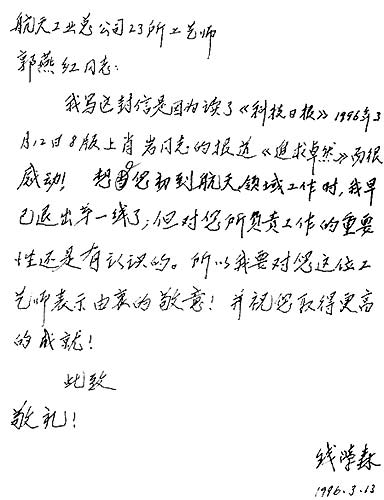 航天工业总公司23所工艺师
郭燕红同志：
我写这封信是因为读了《科技日报》1996年3
月12日8版上肖岩同志的报道《追求卓然》而很
感动！想您初到航天领域工作时，我早
已退出第一线了；但对您所负责工作的重要
性还是有认识的。所以我要对您这位工
艺师表示由衷的敬意！并祝您取得更高
的成就！
此致
敬礼！
钱学森
1996.3.13